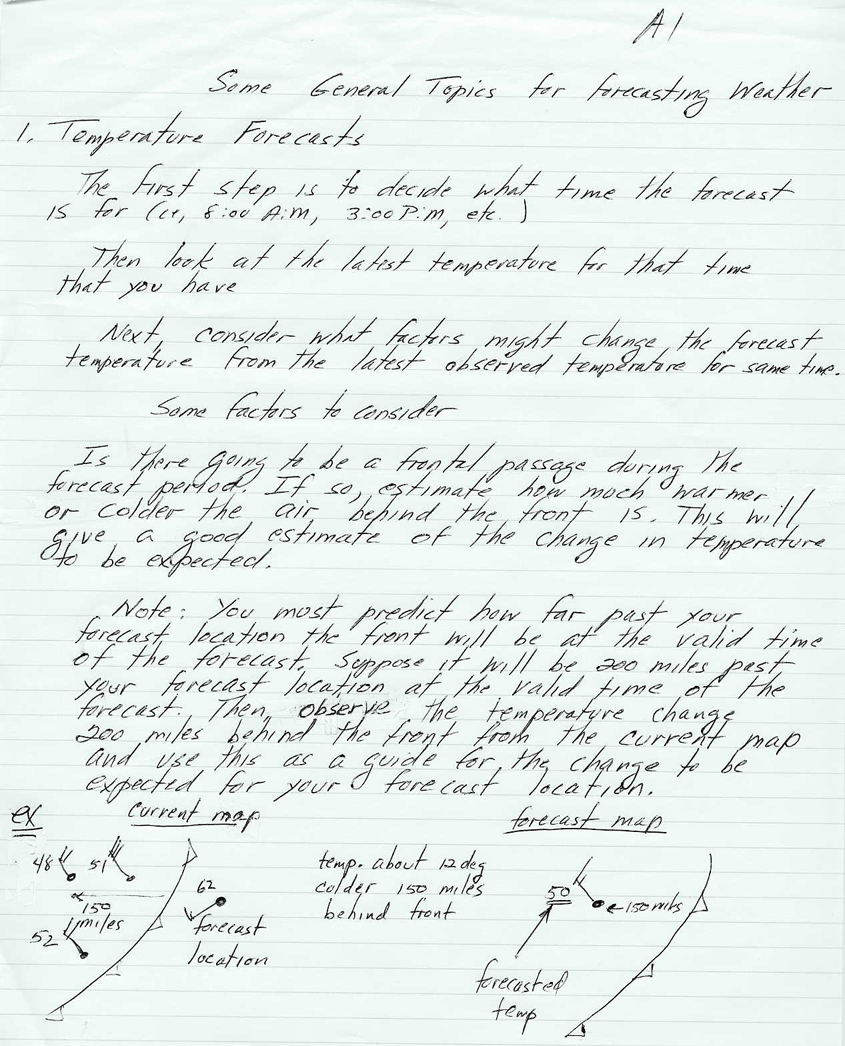 A1
Some General Topics for forecasting Weather
1. Temperature Forecasts
The first step is to decide what time the forecast
is for (ie, 8:00 A.M, 3:00 P.M, etc. )
Then look at the latest temperature for that time
that you have
Next, consider what factors might change the forecast
temperature from the latest observed temperature for same time.
Some factors to consider
Is there going to be a frontal passage during the
forecast period. If so, estimate how much warmer
or colder the air behind the front is. This will
give a good estimate of the change in temperature
to be expected.
Note: You most predict how far past your
forecast location the front will be at the valid time
of the forecast. Suppose it will be 200 miles past
your forecast location at the valid time of the
forecast. Then, observe the temperature change
200 miles behind the front from the current map
and use this as a guide for the change to be
expected for your forecast location.
ex current map forecast map
48 51
62
150
miles
52
forecast
location
temp. about 12 deg
colder 150 miles
behind front
50
150 miles
forecasted
temp